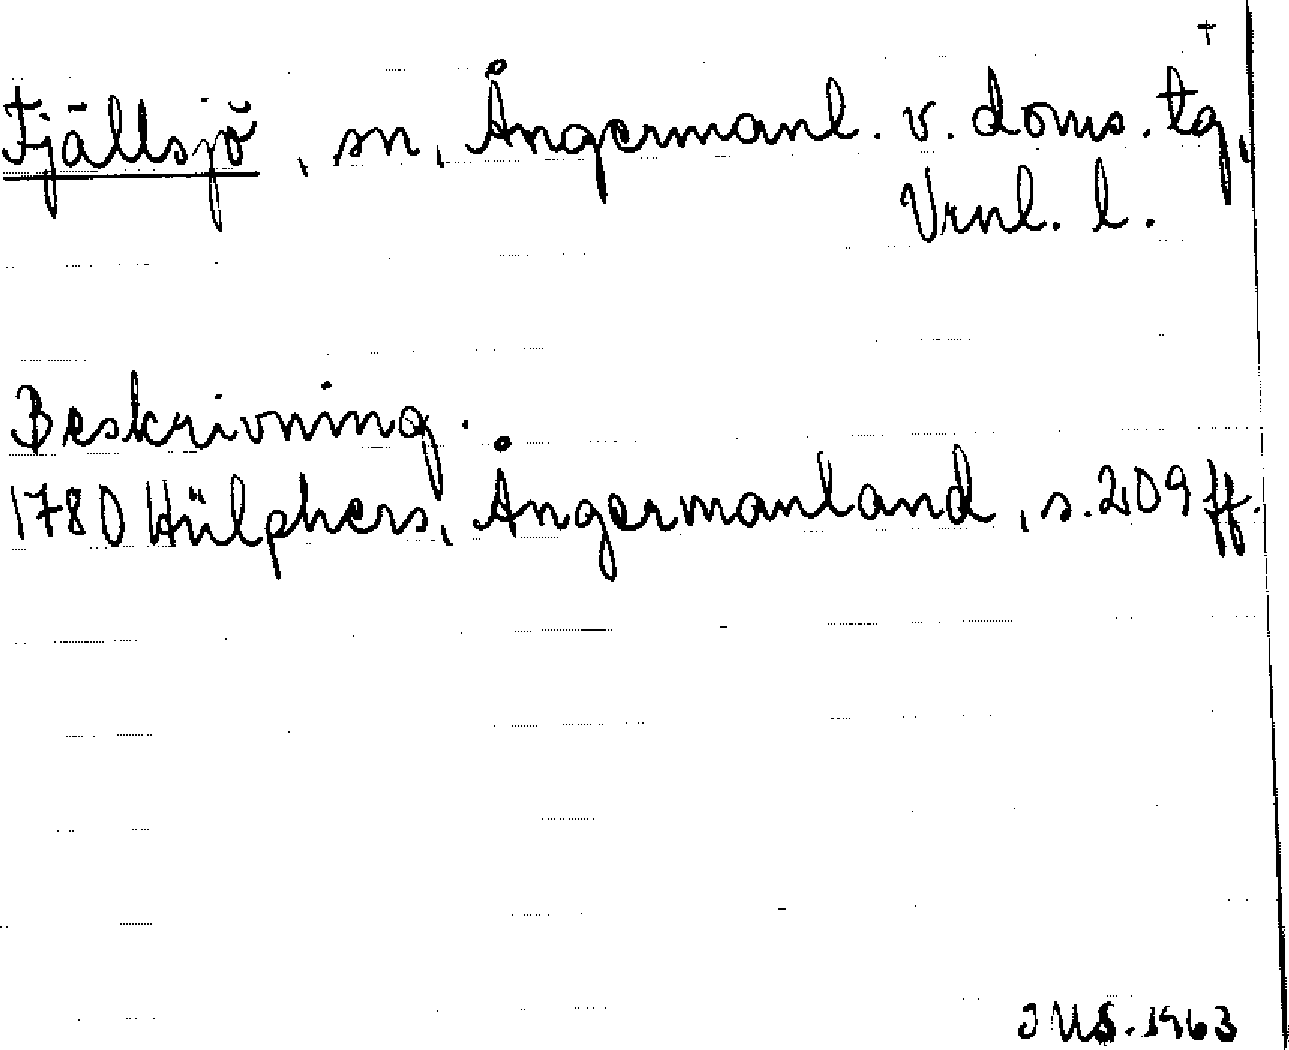 †
Fjällsjö, sn, Ångermanl. v. doms. tg,
Vrnl. l.
Beskrivning.
1780 Hülphers, Ångermanland, s. 209 ff.
1963